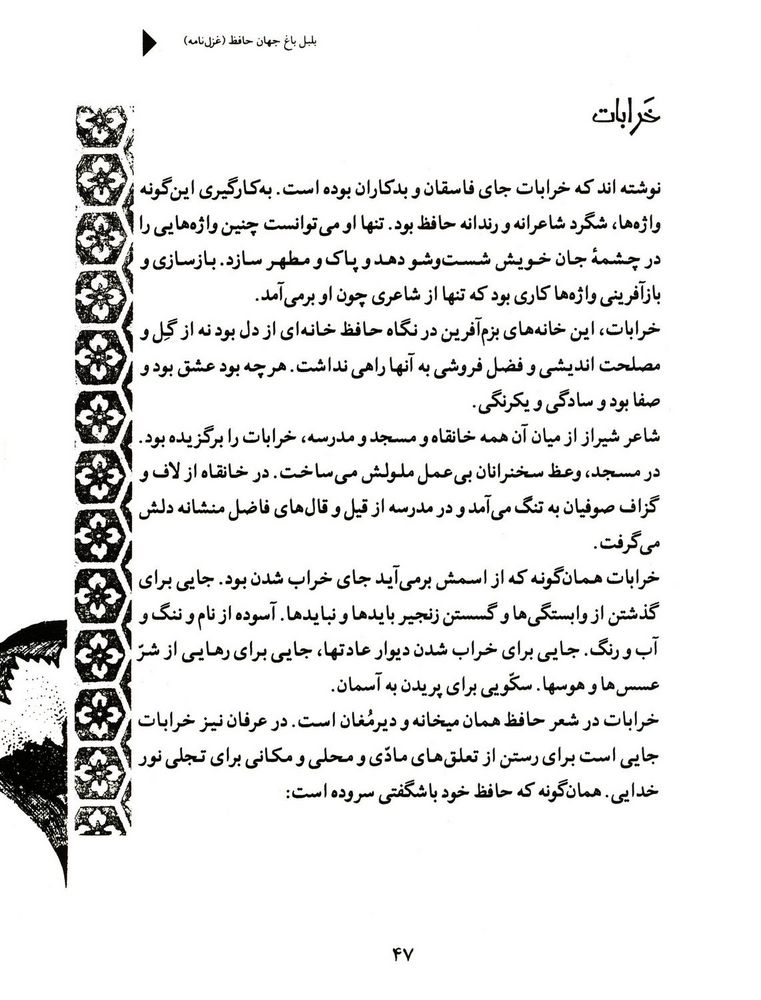 بلبل باغ جهان حافظ (غزل‌نامه)
خَرابات
نوشته اند که خرابات جای فاسقان و بدکاران بوده است. به‌کارگیری این‌گونه
واژه‌ها، شگرد شاعرانه و رندانه حافظ بود. تنها او می‌توانست چنین واژه‌هایی را
در چشمهٔ جان خویش شست‌وشو دهد و پاک و مطهر سازد. بازسازی و
بازآفرینی واژه‌ها کاری بود که تنها از شاعری چون او برمی‌آمد.
خرابات، این خانه‌های بزم‌آفرین در نگاه حافظ خانه‌ای از دل بود نه از گِل و
مصلحت اندیشی و فضل فروشی به آنها راهی نداشت. هرچه بود عشق بود و
صفا بود و سادگی و یکرنگی.
شاعر شیراز از میان آن همه خانقاه و مسجد و مدرسه، خرابات را برگزیده بود.
در مسجد، وعظ سخنرانان بی‌عمل ملولش می‌ساخت. در خانقاه از لاف و
گزاف صوفیان به تنگ می‌آمد و در مدرسه از قیل و قال‌های فاضل منشانه دلش
می‌گرفت.
خرابات همان‌گونه که از اسمش برمی‌آید جای خراب شدن بود. جایی برای
گذشتن از وابستگی‌ها و گسستن زنجیر بایدها و نبایدها. آسوده از نام و ننگ و
آب و رنگ. جایی برای خراب شدن دیوار عادتها، جایی برای رهایی از شرّ
عسس‌ها و هوسها. سکّویی برای پریدن به آسمان.
خرابات در شعر حافظ همان میخانه و دیرمُغان است. در عرفان نیز خرابات
جایی است برای رستن از تعلق‌های مادّی و محلی و مکانی برای تجلی نور
خدایی. همان‌گونه که حافظ خود باشگفتی سروده است:
۴۷